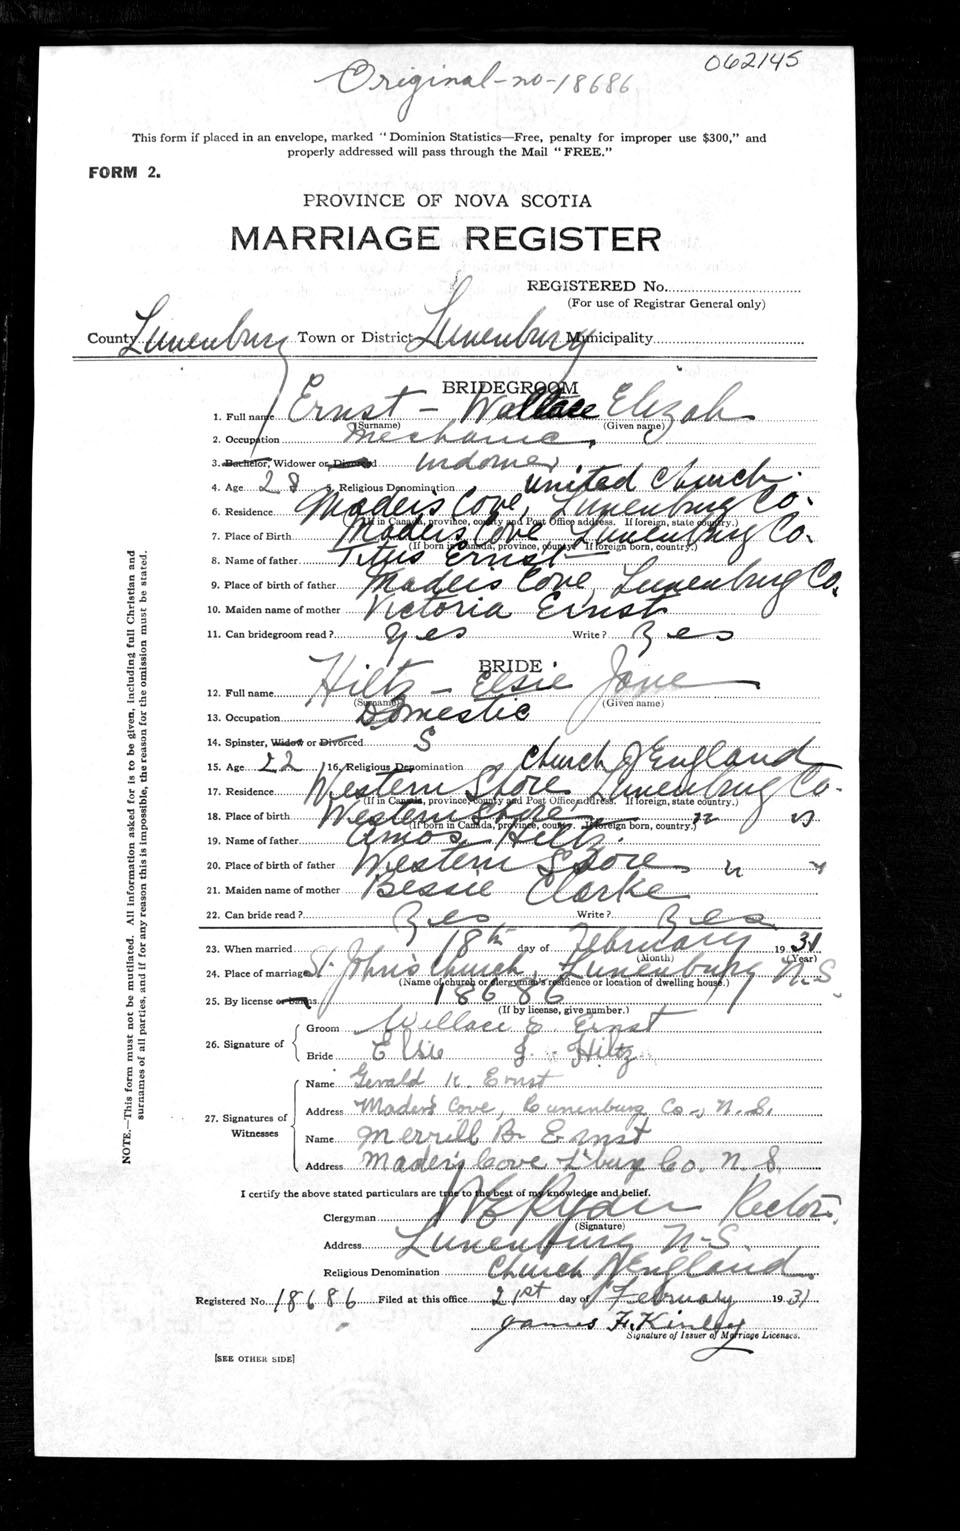 062145
Original-no-18686
This form if placed in an envelope, marked "Dominion Statistics—Free, penalty for improper use $300," and
properly addressed will pass through the Mail "FREE."
FORM 2.
PROVINCE OF NOVA SCOTIA
MARRIAGE REGISTER
REGISTERED No.
(For use of Registrar General only)
County Lunenburg Town or District Lunenburg Municipality
BRIDEGROOM
1. Full name Ernst - Wallace Elizah
(Surname) (Given name)
2. Occupation Mechanic
3. Bachelor, Widower or Divorced Widower
4. Age 28 5. Religious Denomination United Church
6. Residence Maders Cove, Lunenburg Co.
(If in Canada, province, county and Post Office address. If foreign, state country.)
7. Place of Birth Maders Cove, Lunenburg Co.
(If born in Canada, province, county. If foreign born, country.)
8. Name of father Titus Ernst
9. Place of birth of father Maders Cove, Lunenburg Co.
10. Maiden name of mother Victoria Ernst
11. Can bridegroom read? Yes Write? Yes
BRIDE
12. Full name Hiltz - Elsie Jane
(Surname) (Given name)
13. Occupation Domestic
14. Spinster, Widow or Divorced S
15. Age 22 16. Religious Denomination Church of England
17. Residence Western Shore Lunenburg Co.
(If in Canada, province, county and Post Office address. If foreign, state country.)
18. Place of birth Western Shore " "
(If born in Canada, province, county. If foreign born, country.)
19. Name of father Amos Hiltz
20. Place of birth of father Western Shore " "
21. Maiden name of mother Bessie Clarke
22. Can bride read? Yes Write? Yes
23. When married 18th day of February 1931
(Month) (Year)
24. Place of marriage St. John's Church, Lunenburg N.S.
(Name of church or clergyman's residence or location of dwelling house.)
25. By license or banns 18686
(If by license, give number.)
26. Signature of
Groom Wallace E. Ernst
Bride Elsie J. Hiltz
27. Signatures of Witnesses
Name Gerald K. Ernst
Address Mader's Cove, Lunenburg Co., N.S.
Name Merrill B. Ernst
Address Mader's Cove L'burg Co. N.S.
I certify the above stated particulars are true to the best of my knowledge and belief.
Clergyman Ryder Rector
(Signature)
Address Lunenburg N-S.
Religious Denomination Church of England
Registered No. 18686 Filed at this office 21st day of February 1931
James F. Kinley
Signature of Issuer of Marriage Licenses.
[SEE OTHER SIDE]
NOTE.—This form must not be mutilated. All information asked for is to be given, including full Christian and
surnames of all parties, and if for any reason this is impossible, the reason for the omission must be stated.